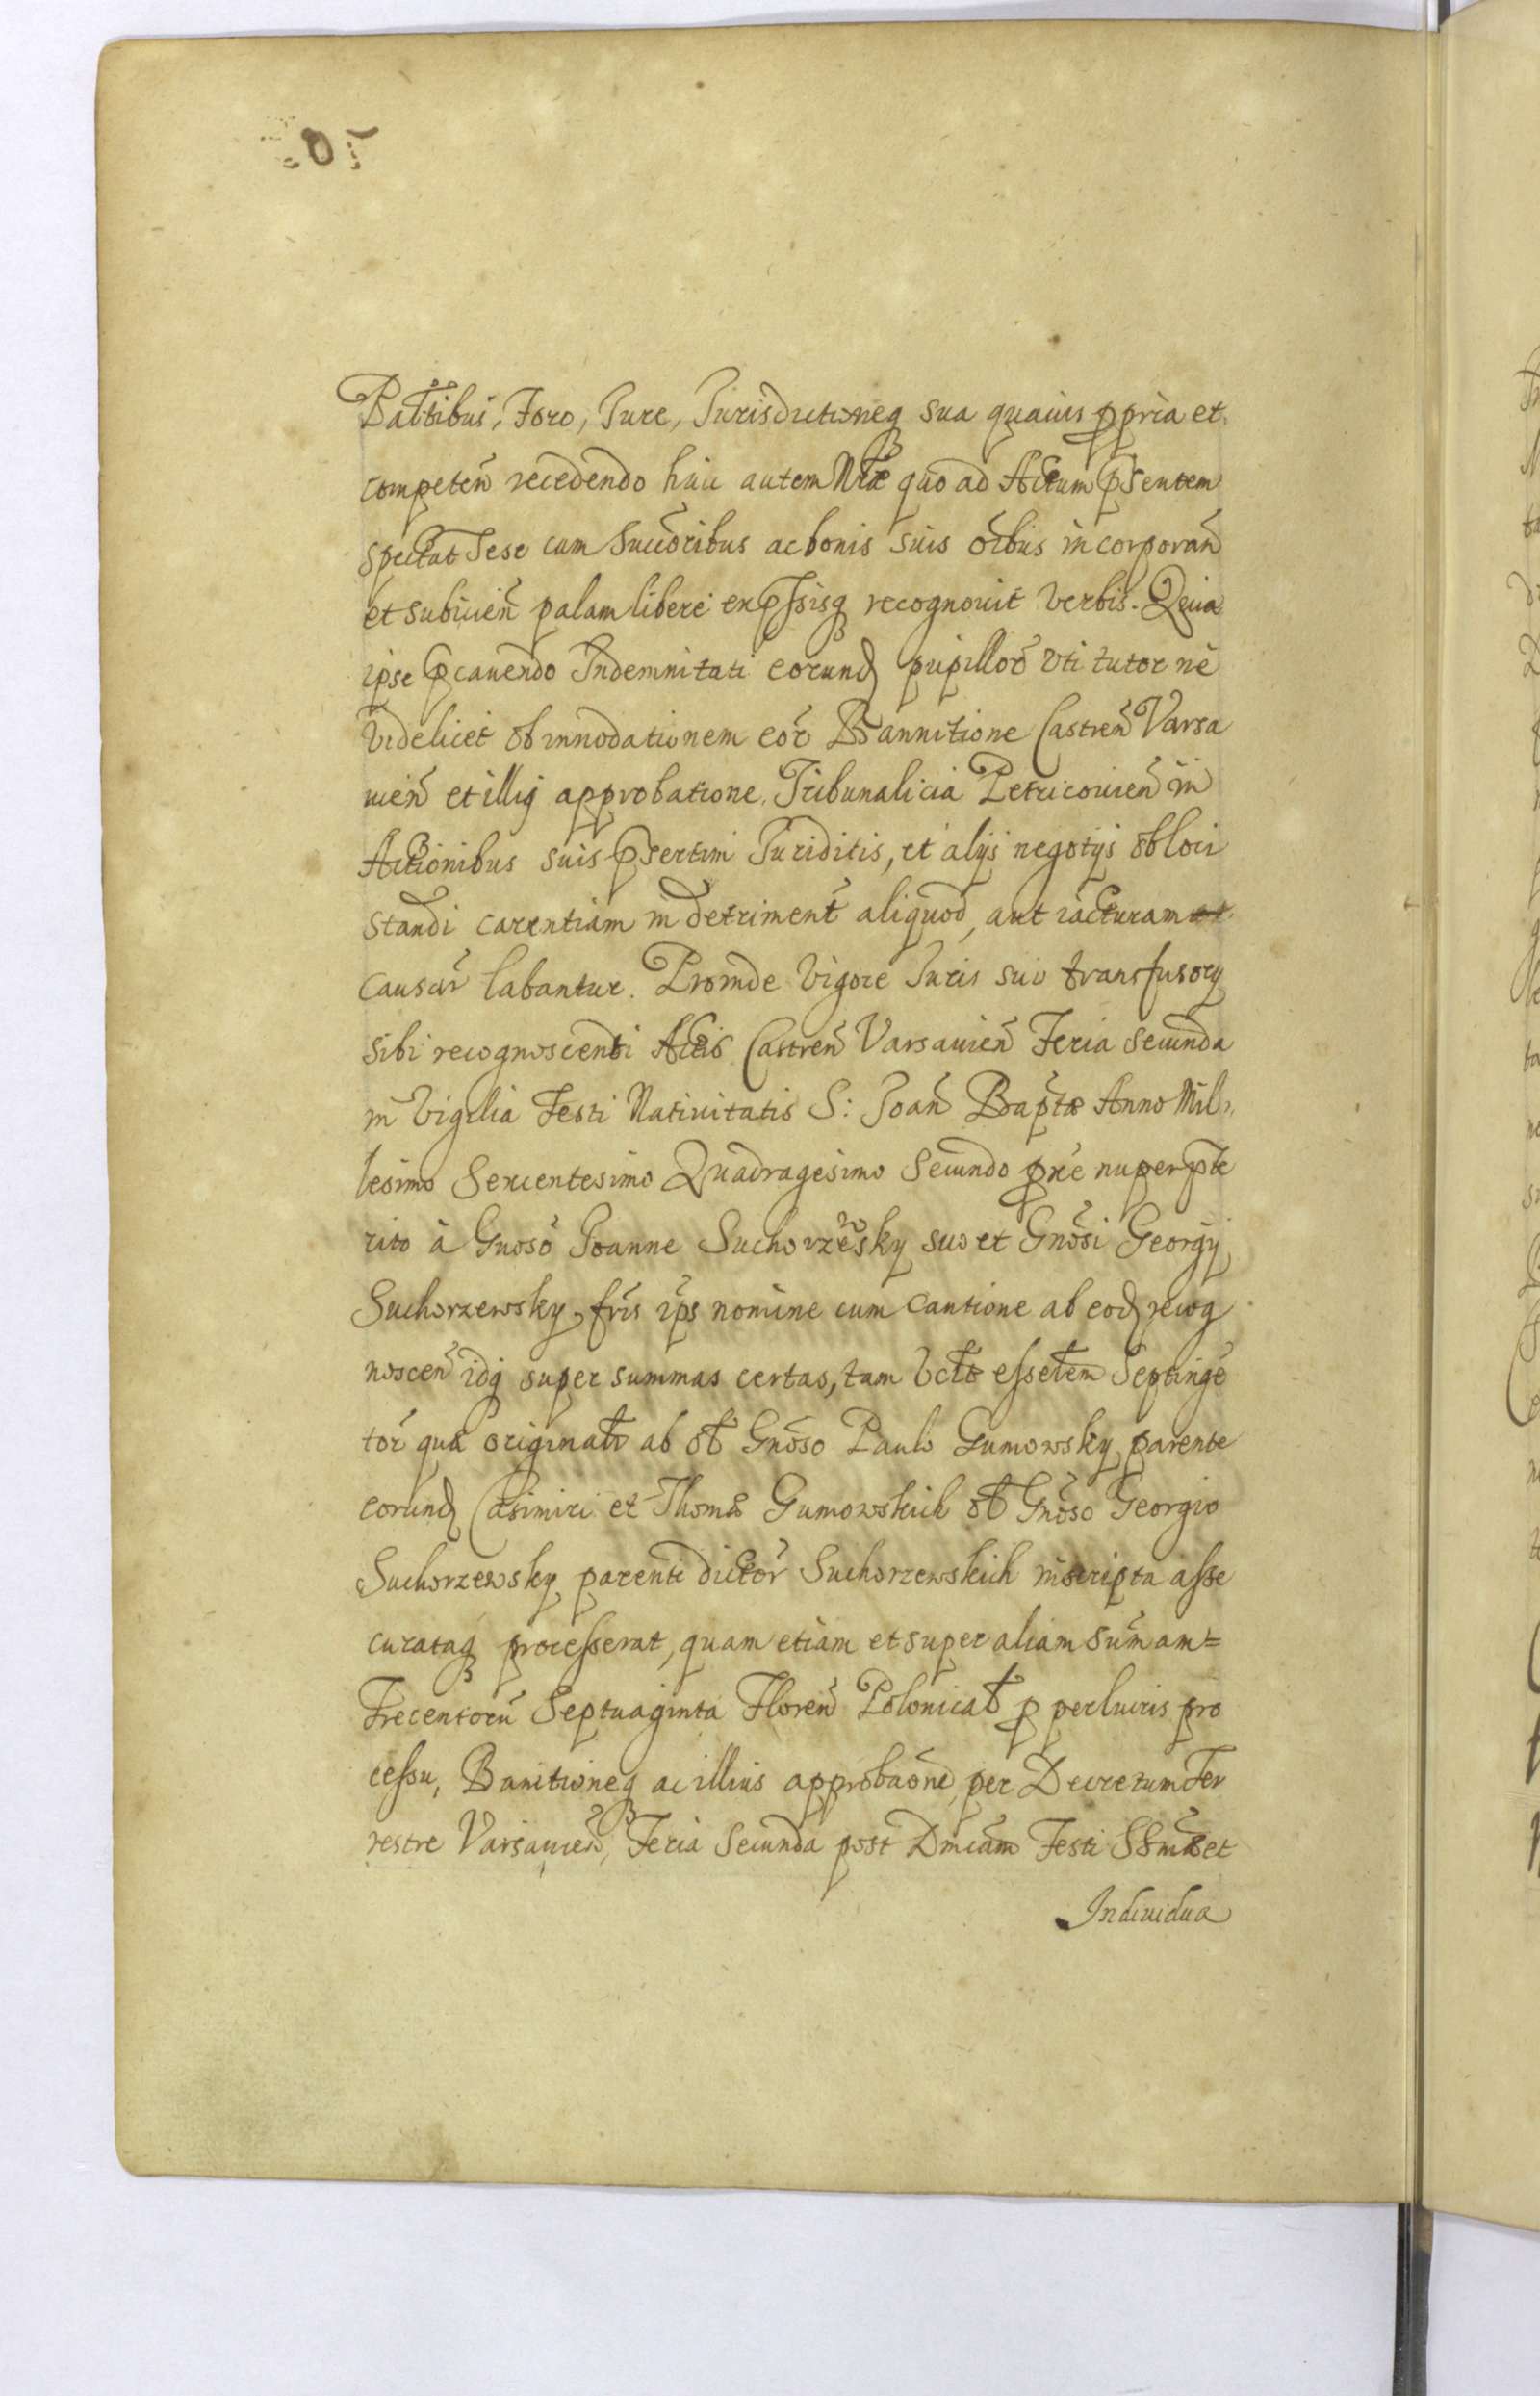 Palatibus, Foro, Jure, Jurisdictioneq sua quauis ppria et
competeñ recedendo huic autem Nræ quo ad Actum pSentem
spectat Sese cum Succoribus ac bonis suis oibus incorporañ
et subiicieñ palam libere expssisq recognouit verbis. Quia
ipse pcauendo Indemnitati eorund pupillor vti tutor ne
videlicet ob innodationem eor Bannitione Castreñ Varsa
uieñ et illiq approbatione Tribunalicia Petricouieñ in
Actionibus suis pSertim Juriditis, et alijs negotijs ob loci
standi carentiam in detriment aliquod, aut iacturam
causar labantur. Proinde vigore Juris sui transfusory
sibi recognoscenti Actis Castreñ Varsauieñ Feria secunda
in vigilia Festi Natiuitatis S: Joañ Baptæ Anno Mil
lesimo Sexcentesimo Quadragesimo Secundo pxie nuper pte
rito à Gnoso Joanne Suchorzewsky suo et Gnosi Georgij
Suchorzewsky fris ips nomine cum Cautione ab eod recog
nosceñ idq super summas certas, tam vclt essetem Septinge
tor qua originalr ab ol Gnoso Paulo Gumowsky parente
eorund Casimiri et Thomæ Gumowskich ol Gnoso Georgio
Suchorzewsky parenti dictor Suchorzewskich inscripta asse
curataq processerat, quam etiam et super aliam sumam=
Trecentoru Septuaginta Floreñ Polonical p perlucris pro
cessu, Banitioneq ac illius approbaone, per Decretum Ter
restre Varsauieñ, Feria Secunda post Dnicam Festi SSmæ et
Individua